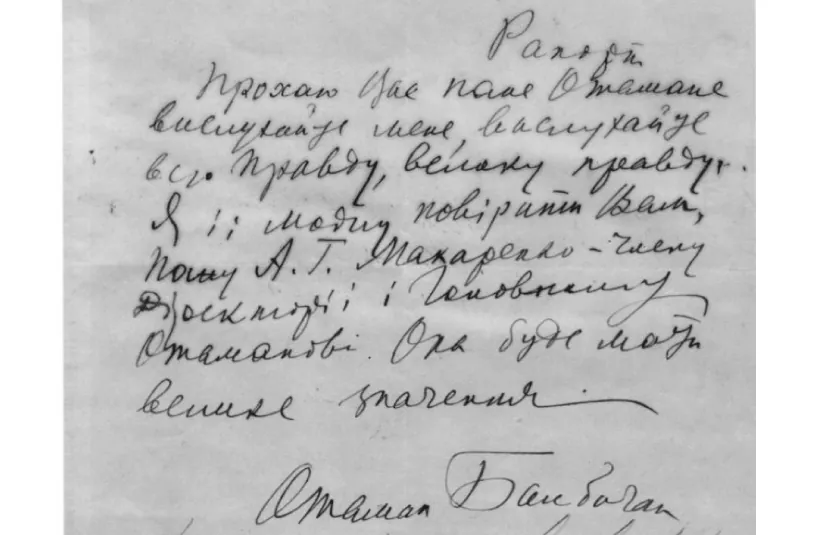 Рапорт
Прохаю Вас пане Отамане
вислухайте мене, вислухайте
всю правду, велику правду.
Я її можу повірити Вам,
пану А. Г. Макаренко - члену
Діректорії і Головному
Отаманові. Она буде мати
велике значення.
Отаман Балбачан